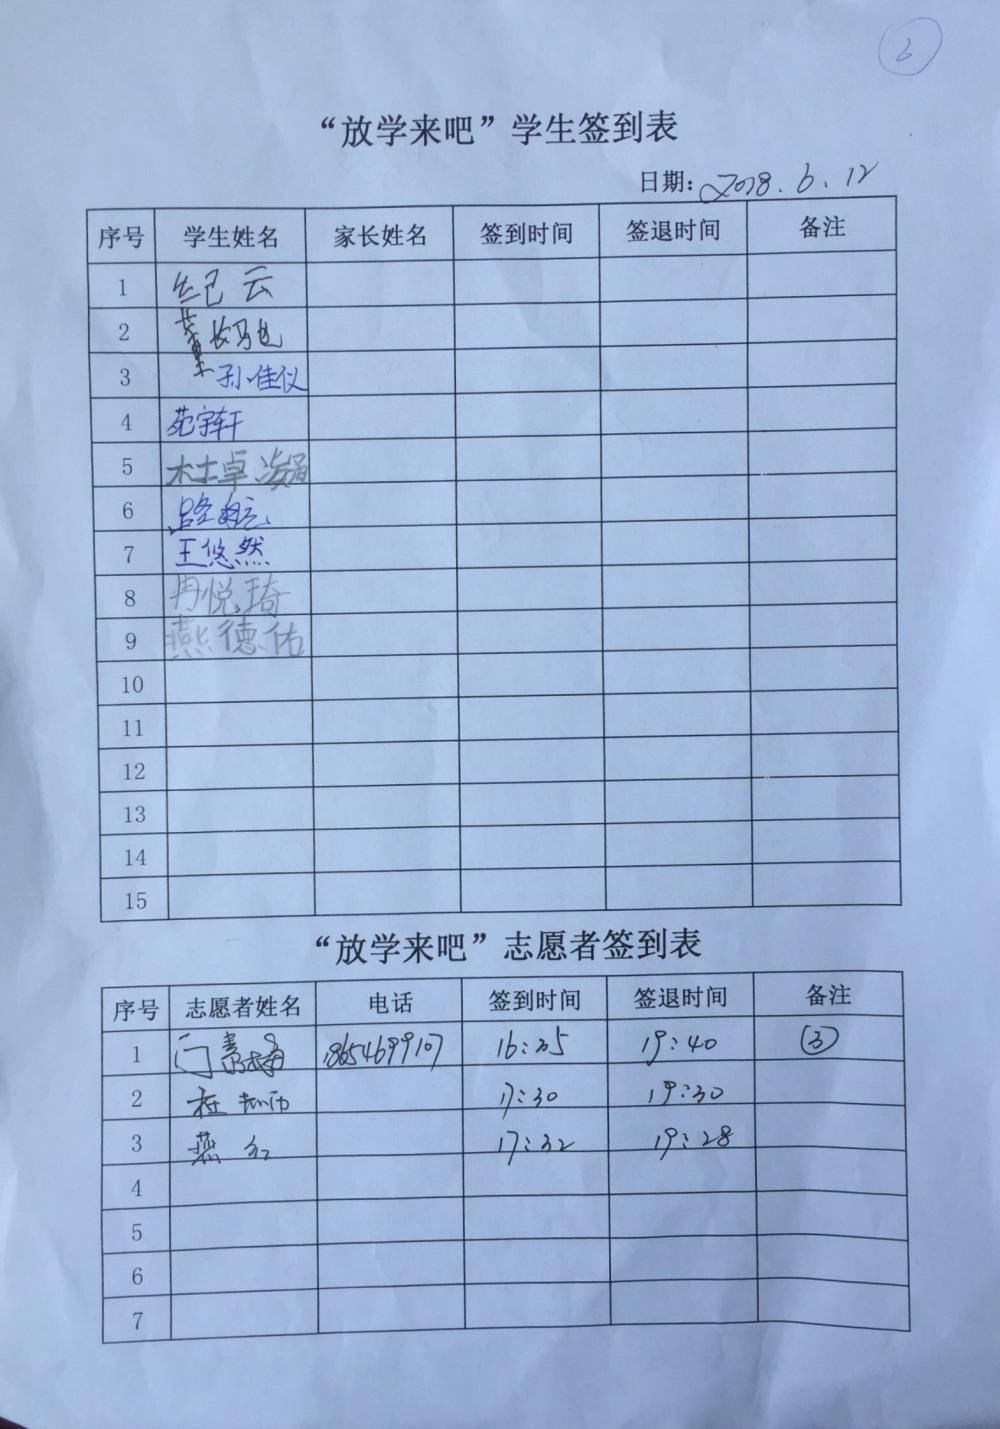 6
“放学来吧”学生签到表
日期: 2018.6.12
序号 学生姓名 家长姓名 签到时间 签退时间 备注
1 纪云
2 董长驰
3 孙佳仪
4 苑宇轩
5 杜卓凝
6 路航
7 王悠然
8 冉悦琦
9 燕德佑
10
11
12
13
14
15
“放学来吧”志愿者签到表
序号 志愿者姓名 电话 签到时间 签退时间 备注
1 门 18654699107 16:35 19:40 ③
2 17:30 19:30
3 燕红 17:32 19:28
4
5
6
7